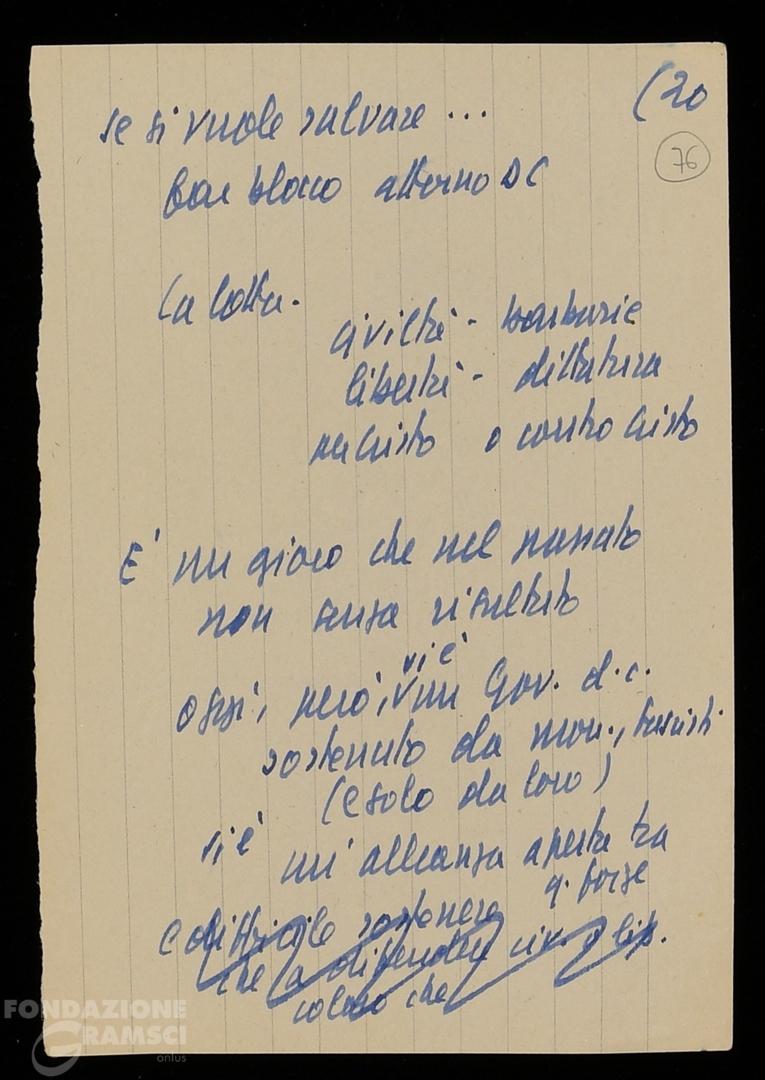 (20
76
se si vuole salvare ...
far blocco attorno DC
La lotta.
civiltà - barbarie
libertà - dittatura
per Cristo o contro Cristo
E' un gioco che nel passato
non senza risultato
oggi, però, vi è un Gov. d.c.
sostenuto da mon., fascisti
(e solo da loro)
vi è
un'alleanza aperta tra
q. forze
e difficile sostenere
che a difendere civ. e lib.
coloro che
FONDAZIONE
GRAMSCI
onlus